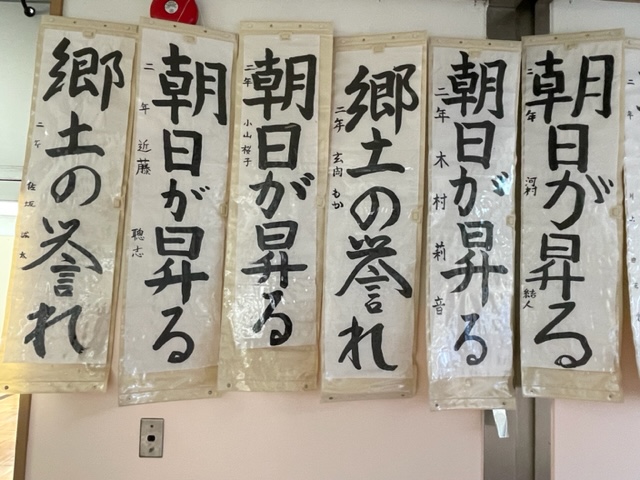 郷土の誉れ
二年
朝日が昇る
二年 近藤 聰志
朝日が昇る
二年 小山桜子
郷土の誉れ
二年 もか
朝日が昇る
二年 木村莉音
朝日が昇る
二年 河村 結人